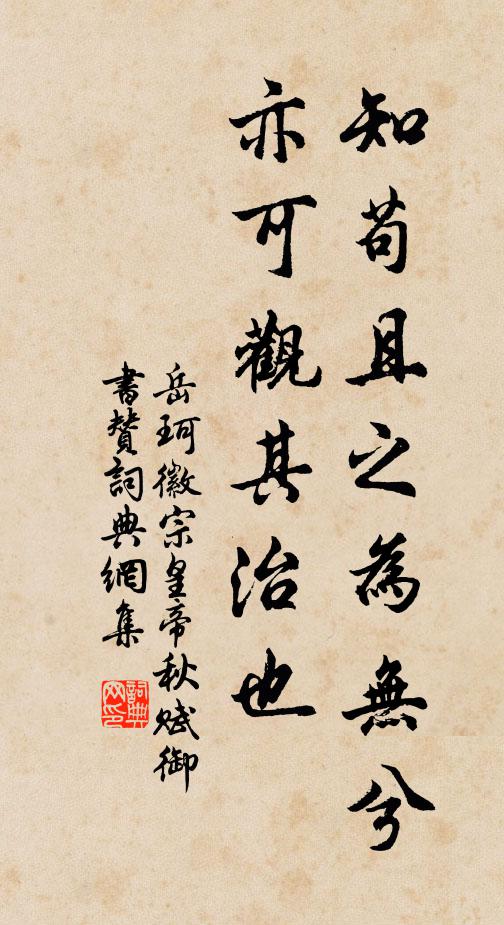 知苟且之為無兮
亦可觀其治也
岳珂徽宗皇帝秋賦御
書贊詞典網集
詞典
网印